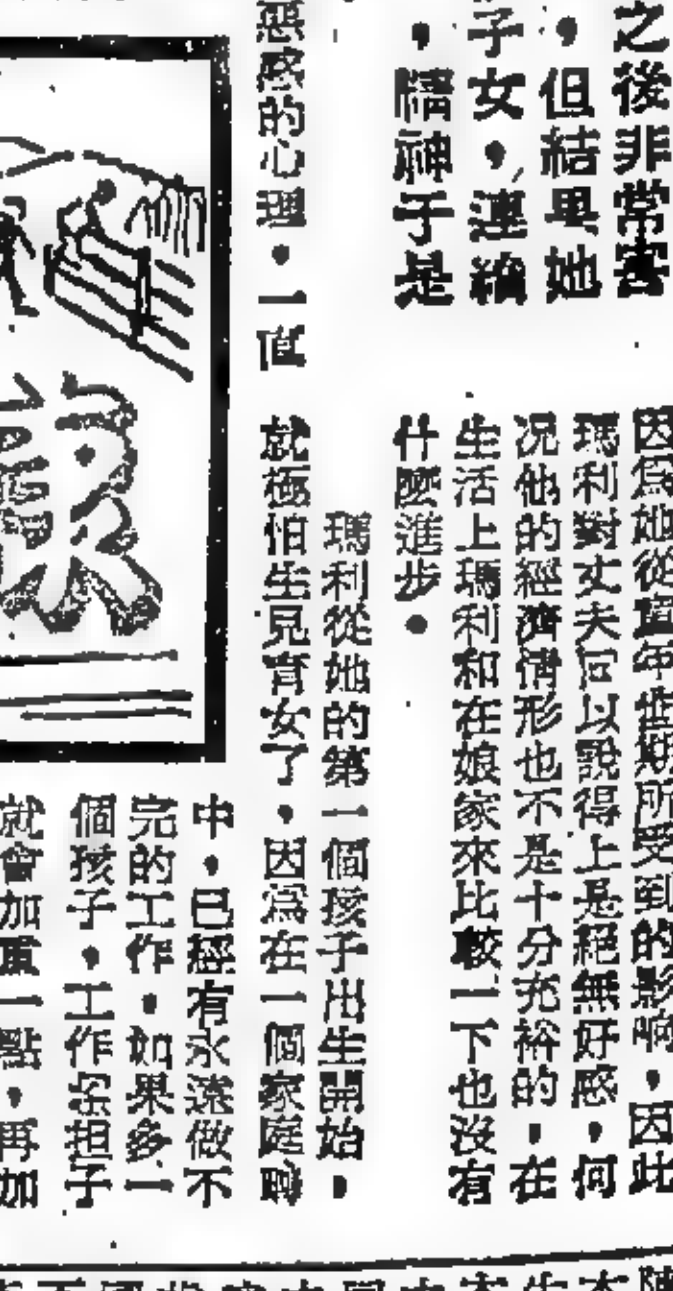 之後非常害
，但結果她
子女，連續
，精神于是
惡感的心理。一直
因爲她從童年世期所受到的影响，因此
瑪利對丈夫可以說得上是絕無好感，何
况他的經濟情形也不是十分充裕的，在
生活上瑪利和在娘家來比較一下也沒有
什麽進步。
瑪利從她的第一個孩子出生開始，
就極怕生兒育女了，因爲在一個家庭
中，已經有永遠做不
完的工作，如果多一
個孩子，工作担子
就會加重一點，再加
錄